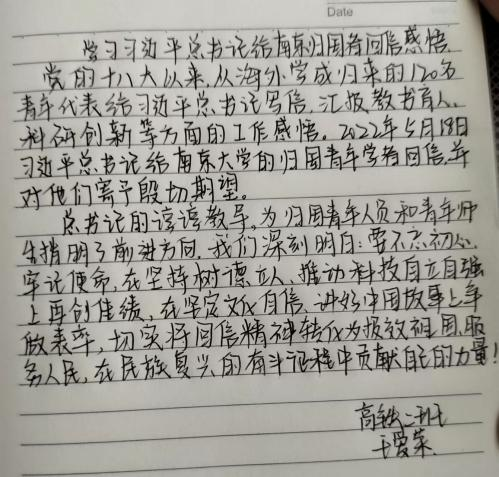 Date
学习习近平总书记给南京归国者回信感悟.
党的十八大以来,从海外学成归来的120名
青年代表给习近平总书记写信,汇报教书育人、
科研创新等方面的工作感悟。2022年5月18日
习近平总书记给南京大学的归国青年学者回信,并
对他们寄予殷切期望。
总书记的谆谆教导,为归国青年人员和青年师
生指明了前进方向,我们深刻明白:要不忘初心、
牢记使命,在坚持树德立人、推动科技自立自强
上再创佳绩,在坚定文化自信、讲好中国故事上争
做表率,切实将回信精神转化为报效祖国、服
务人民,在民族复兴的奋斗征程中贡献自己的力量!
高铁二班
爱荣